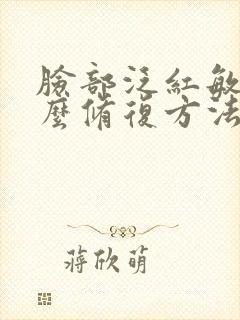 臉部泛紅敏
麼脩復方法
蔣欣萌